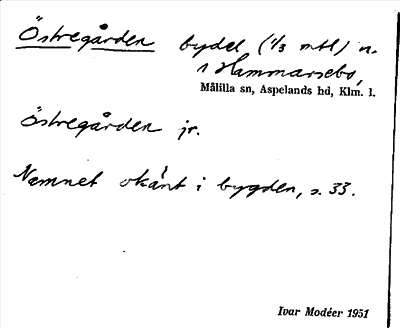 Östregården bydel (1/3 mtl) n.
i Hammarsebo,
Målilla sn, Aspelands hd, Klm. l.
Östregården jr.
Namnet okänt i bygden, s. 33.
Ivar Modéer 1951